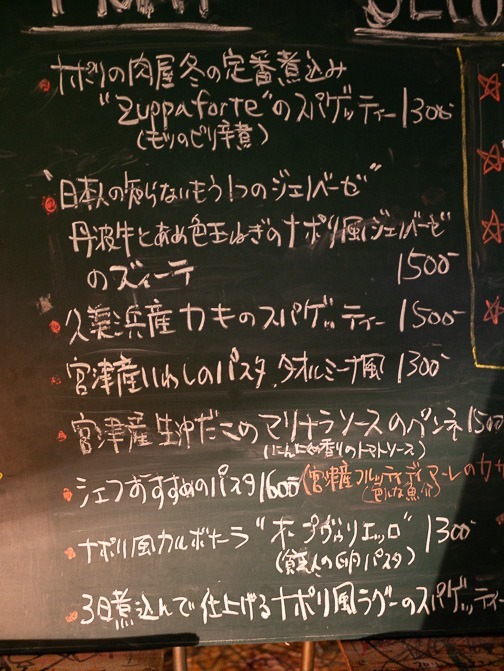 ナポリの肉屋冬の定番煮込み
"Zuppaforte"のスパゲッティー 1300-
(もつのピリ辛煮)
"日本人の知らないもう1つのジェノベーゼ"
丹波牛とあめ色玉ねぎのナポリ風ジェノベーゼ
のズィーテ 1500-
久美浜産カキのスパゲッティー 1500-
宮津産いわしのパスタ、タオルミーナ風 1300-
宮津産生沖だこのマリナラソースのペンネ 150
(にんにく香りのトマトソース)
シェフおすすめのパスタ 1600 (宮津産フルッティディマーレのカサ
(色んな魚介)
ナポリ風カルボナーラ "オ プヴリエッロ" 1300-
(貧乏人の卵パスタ)
3日煮込んで仕上げるナポリ風ラグーのスパゲッティー